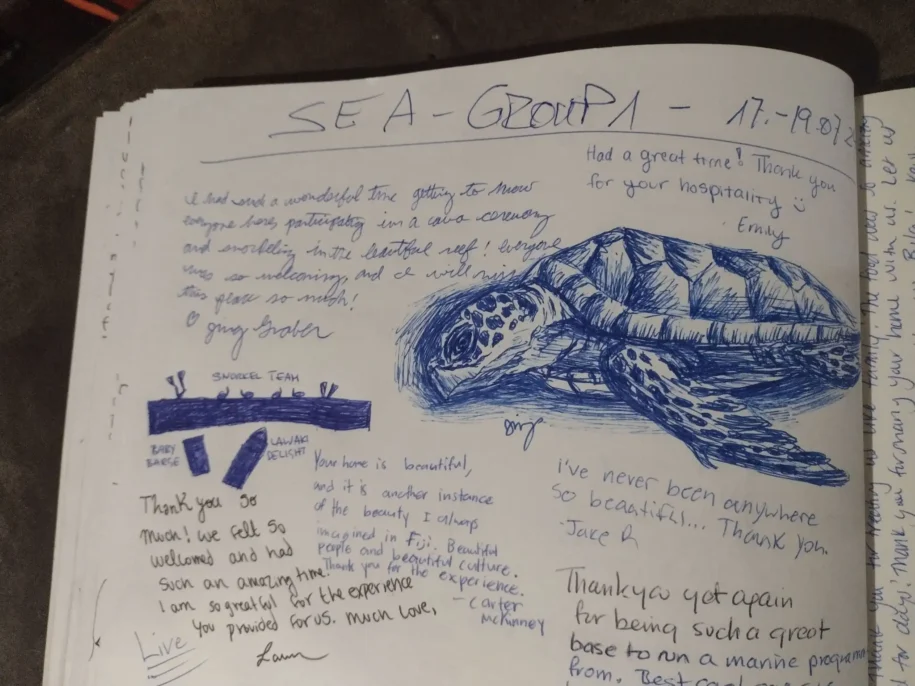 SEA - GROUP 1 - 17.-19.07.2
Had a great time! Thank you
for your hospitality
- Emily
I had such a wonderful time getting to know
everyone here, participating in a cava ceremony
and snorkeling in the beautiful reef! Everyone
was so welcoming, and I will miss
this place so much!
SNORKEL TEAM
BABY
BARGE
LAWAKI
DELIGHT
Your home is beautiful,
and it is another instance
of the beauty I always
imagined in Fiji. Beautiful
people and beautiful culture.
Thank you for the experience.
- Carter
McKinney
Thank you so
much! We felt so
welcomed and had
such an amazing time.
I am so greatful for the experience
you provided for us. Much love,
Live
I've never been anywhere
so beautiful... Thank you.
- Jake R
Thank you yet again
for being such a great
base to run a marine program
from. Best
thank you for treating us like family. The food was so amazing
for days! Thank you for sharing your home with us. Let us